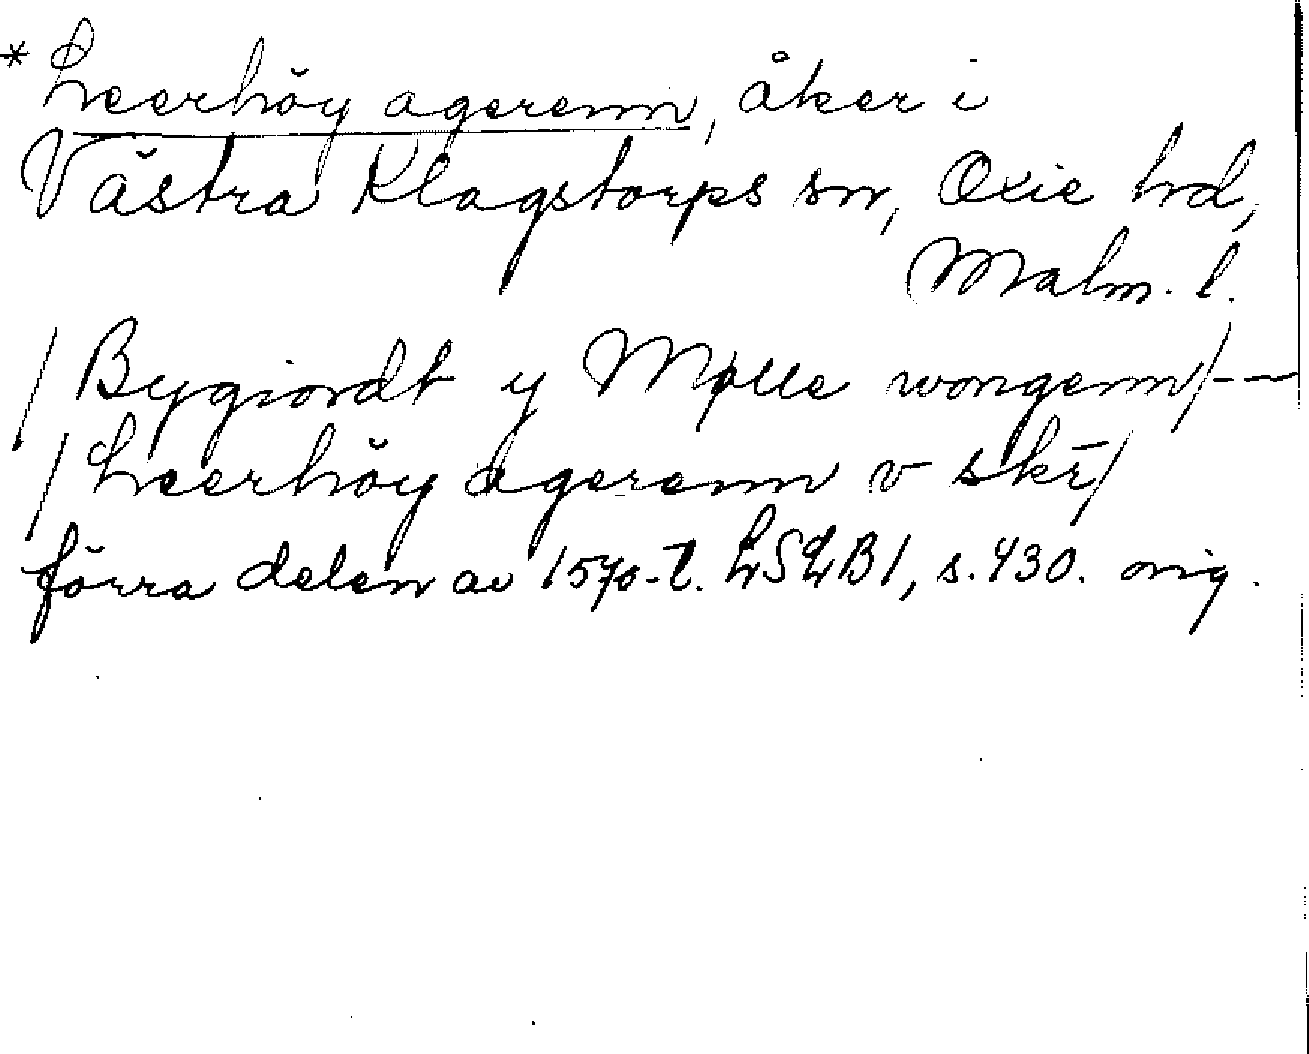 * Leerhöy agerenn, åker i
Västra Klagstorps sn, Oxie hd,
Malm. l.
/ Bygiordt y Mølle wongenn/--
/ Leerhöy agerenn v skr/
förra delen av 1570-t. LSLB1, s. 430. orig.